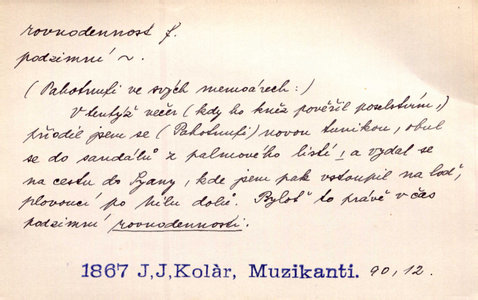 rovnodennost f.
podzimní ~.
(Pakotnufi ve svých memoárech:)
V tentýž večer (kdy ho kněz pověřil poselstvím,)
přioděl jsem se (Pakotnufi) novou tunikou, obul
se do sandálů z palmového listí, a vydal se
na cestu do Syany, kde jsem pak vstoupil na loď,
plovoucí po Nilu dolů. Byloť to právě v čas
podzimní rovnodennosti.
1867 J,J,Kolàr, Muzikanti. 90, 12.